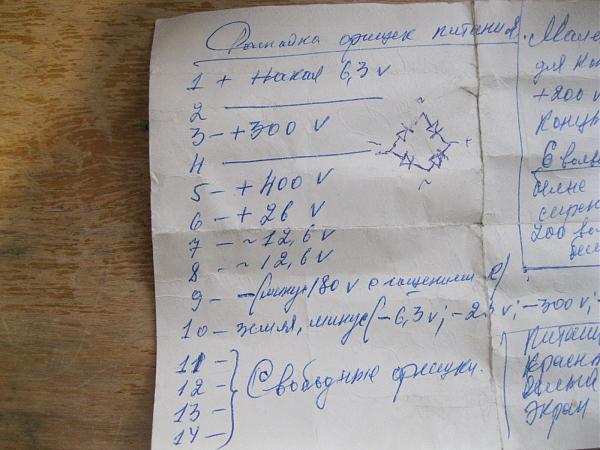 Распайка фишек питания.
1 + Накал 6,3 v
2
3 - +300 v
4
5 - + 400 v
6 - + 26 v
7 - ~ 12,6 v
8 - ~ 12,6 v
9 - -(минус) 80 v
10 - земля, минус (-6,3 v; -2 v; -300 v;
11 -
12 -
13 -
14 -
Свободные фишки.
для
+200 v
6 воль
белые
200 во
бел
Питани
Красн
Экран